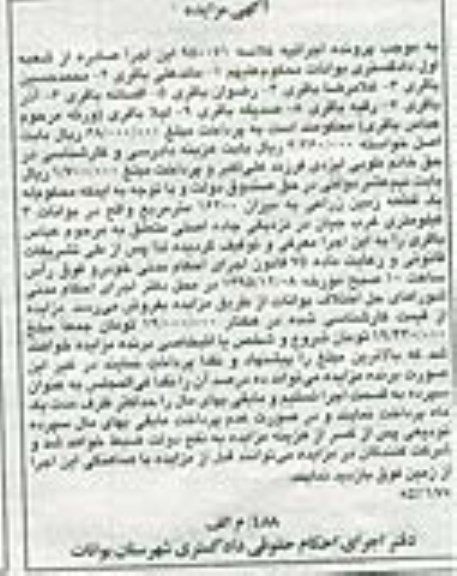 آگهی مزایده
به موجب پرونده اجرائیه کلاسه این اجرا صادره از شعبه
اول دادگستری بوانات محکوم علیهم ۱- ماندعلی باقری ۲- محمدحسین
باقری ۳- غلامرضا باقری ۴- رضوان باقری ۵- افسانه باقری ۶- آذر
باقری ۷- رقیه باقری ۸- صدیقه باقری ۹- لیلا باقری (ورثه مرحوم
عباس باقری) محکومند است به پرداخت مبلغ ریال بابت
اصل خواسته ریال بابت هزینه دادرسی و کارشناسی در
حق خانم طوبی ایزدی فرزند علی اکبر و پرداخت مبلغ ریال
بابت نیم عشر دولتی در حق صندوق دولت و با توجه به اینکه محکوم له
یک قطعه زمین زراعی به میزان مترمربع واقع در بوانات ۳
کیلومتری غرب جیان در نزدیکی جاده اصلی متعلق به مرحوم عباس
باقری را به این اجرا معرفی و توقیف گردیده لذا پس از طی تشریفات
قانونی و رعایت ماده قانون اجرای احکام مدنی فوق رأس
ساعت ۱۰ صبح مورخه ۱۳۹۵/۱۲/۰۸ در محل دفتر اجرای احکام مدنی
شورای حل اختلاف بوانات از طریق مزایده بفروش می رسد. مزایده
از قیمت کارشناسی شده در هکتار تومان جمعا مبلغ
تومان شروع و شخص یا اشخاصی برنده مزایده خواهند
شد که بالاترین مبلغ را پیشنهاد و نقدا پرداخت نمایند در غیر این
صورت برنده مزایده می تواند ده درصد آن را نقدا فی المجلس به عنوان
سپرده به قسمت اجرا تسلیم و مابقی بهای مال را حداکثر ظرف مدت یک
ماه پرداخت نمایند و در صورت عدم پرداخت مابقی بهای مال سپرده
تودیعی پس از کسر هزینه مزایده به نفع دولت ضبط خواهد شد و
شرکت کنندگان در مزایده می توانند قبل از مزایده با هماهنگی این اجرا
از زمین فوق بازدید نمایند.
۴۸۸/ م الف
دفتر اجرای احکام حقوقی دادگستری شهرستان بوانات